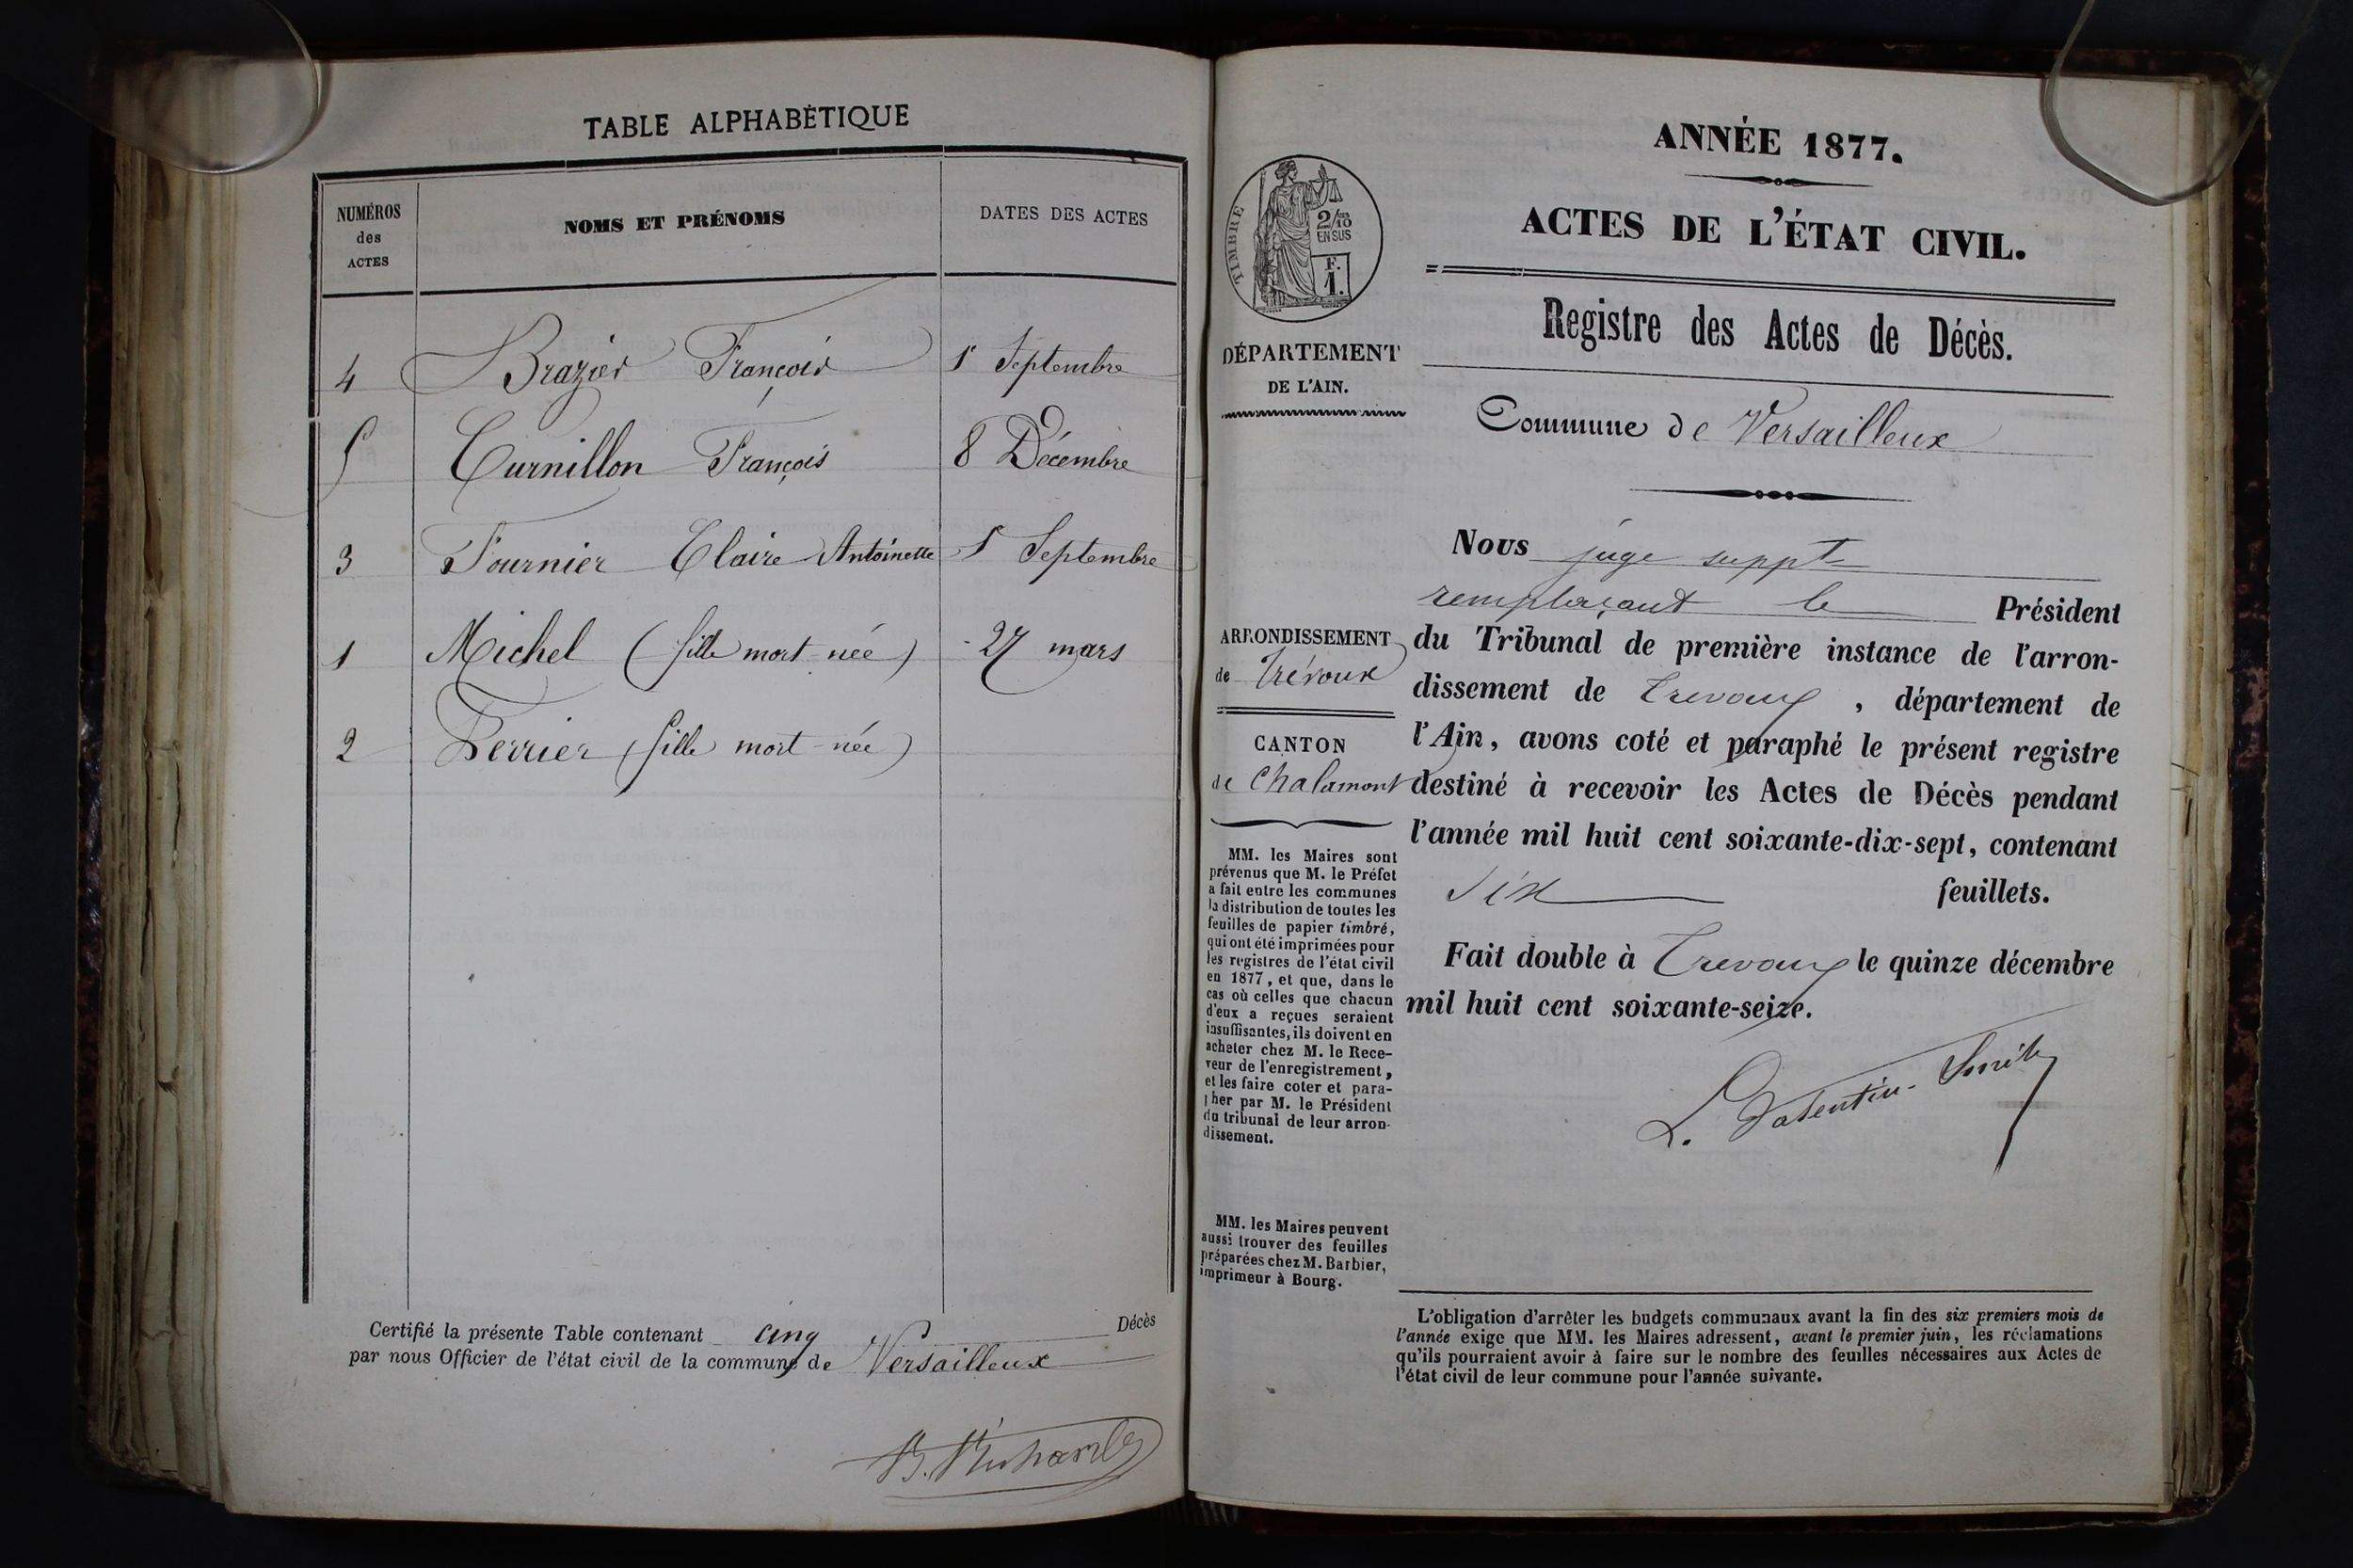 TABLE ALPHABÉTIQUE
NUMÉROS des ACTES
NOMS ET PRÉNOMS
DATES DES ACTES
4 Brazier François 1r Septembre
5 Curnillon François 8 Décembre
3 Fournier Claire Antoinette 1 Septembre
1 Michel (fille mort-née) 27 mars
2 Perrier (fille mort-née)
Certifié la présente Table contenant cinq Décès
par nous Officier de l'état civil de la commune de Versailleux
ANNÉE 1877.
ACTES DE L'ÉTAT CIVIL.
TIMBRE
2/10
EN SUS
F.
1.
DÉPARTEMENT
DE L'AIN.
Registre des Actes de Décès.
Commune de Versailleux
Nous juge suppt
remplaçant le Président
du Tribunal de première instance de l'arron-
dissement de Trevoux, département de
l'Ain, avons coté et paraphé le présent registre
destiné à recevoir les Actes de Décès pendant
l'année mil huit cent soixante-dix-sept, contenant
six feuillets.
Fait double à Trevoux le quinze décembre
mil huit cent soixante-seize.
L. Valentin-Smith
ARRONDISSEMENT
de Trévoux
CANTON
de Chalamont
MM. les Maires sont
prévenus que M. le Préfet
a fait entre les communes
la distribution de toutes les
feuilles de papier timbré,
qui ont été imprimées pour
les registres de l'état civil
en 1877, et que, dans le
cas où celles que chacun
d'eux a reçues seraient
insuffisantes, ils doivent en
acheter chez M. le Rece-
veur de l'enregistrement,
et les faire coter et para-
pher par M. le Président
du tribunal de leur arron-
dissement.
MM. les Maires peuvent
aussi trouver des feuilles
préparées chez M. Barbier,
imprimeur à Bourg.
L'obligation d'arrêter les budgets communaux avant la fin des six premiers mois de
l'année exige que MM. les Maires adressent, avant le premier juin, les réclamations
qu'ils pourraient avoir à faire sur le nombre des feuilles nécessaires aux Actes de
l'état civil de leur commune pour l'année suivante.